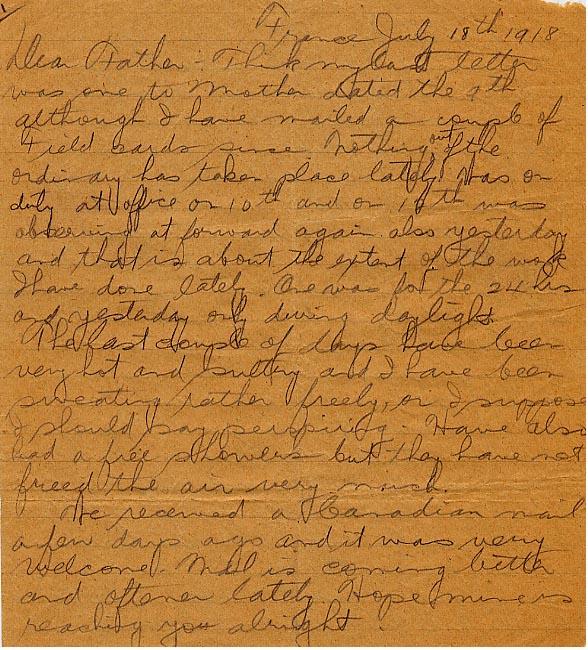 France July 18th 1918
Dear Father - Think my last letter
was one to Mother dated the 9th
although I have mailed a couple of
Field cards since. Nothing out of the
ordinary has taken place lately was on
duly at office on 10th and on was
observing at forward again also yesterday
and that is about the extent of the work
I have done lately. One was for the 24 hrs
and yesterday only during daylight.
The last couple of days have been
very hot and sultry and I have been
sweating rather freely, or I suppose
I should say perspiring. Have also
had a few showers but they have not
freed the air very much.
We received a Canadian mail
a few days ago and it was very
welcome. Mail is coming better
and oftener lately. Hope mine is
reaching you alright.